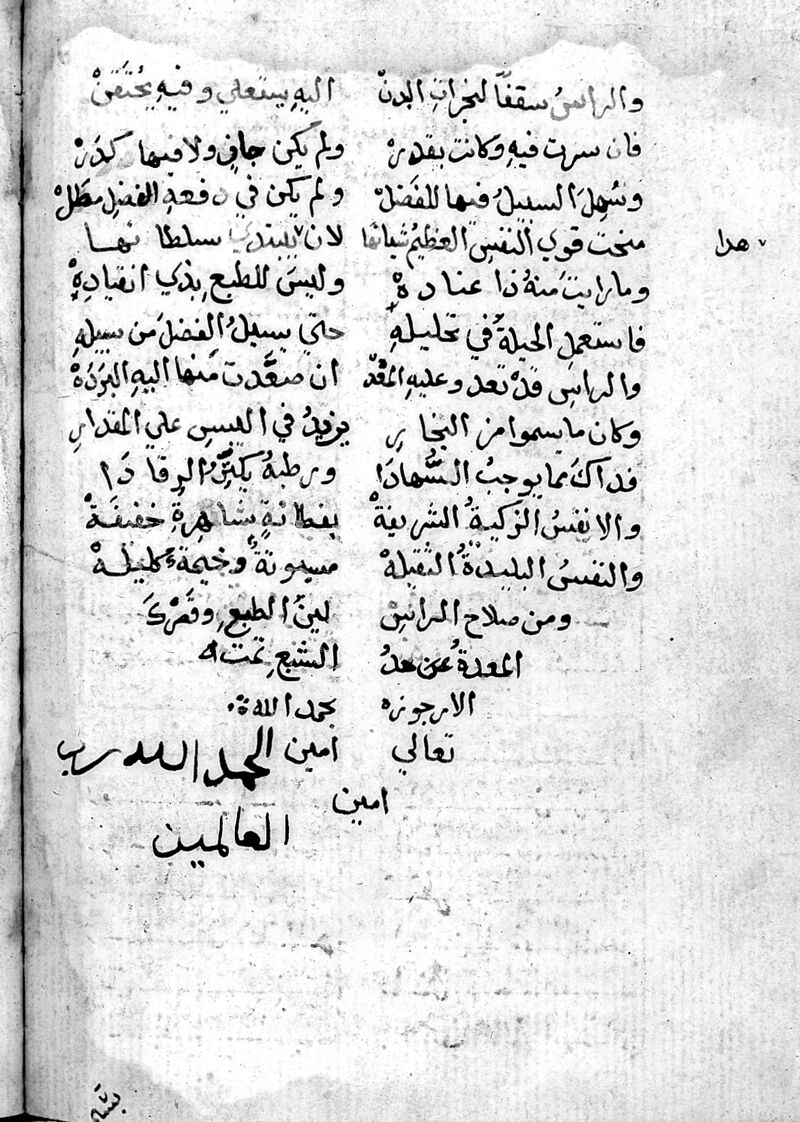 والراسُ سقفًا لبخراتِ البدنْ اليهِ يستعلي وفيهِ يحْتَقَنْ
فان سرت فيهِ وكانت بقدرْ ولم يكن جافٍ ولا فيها كدَرْ
وسُهِلَ السبيلُ فيها للفضَلْ ولم يكن في دفعهِ الفضلِ مطَلْ
منحت قوي النفسِ العظيمُ شبانها لان يبتدي سلطانها
هدا
وما رايتَ منهُ ذا عنادهْ وليسَ للطبعِ بذي انقيادِهْ
فاستعملِ الحيلةُ في تحليلهِ حتي يسيلُ الفضلَ من سبيلهِ
والراسِ قدْ تعد وعليهِ المعْدْ ان صعَّدت منها اليهِ البَرَدَهْ
وكان ما يسموا من البخارِ يزيدُ في اليبسِ علي المقدارِ
فداكَ مما يوجبُ السُّهادَا ورطبهُ يكثِّرُ الرقادَا
والانفسُ الزكيةُ الشريفةْ بفطانةٍ شاهرةٍ خفيفَةْ
والنفسُ البليدةُ الثقيلهْ وخيمة كليلهْ
ومن صلاح الراسِ لينَ الطبعِ
المعدةُ عن حدُ الشبعِ تمت
الارجوزه بحمد الله
تعالي امين الحمد الله رب
امين
العالمين